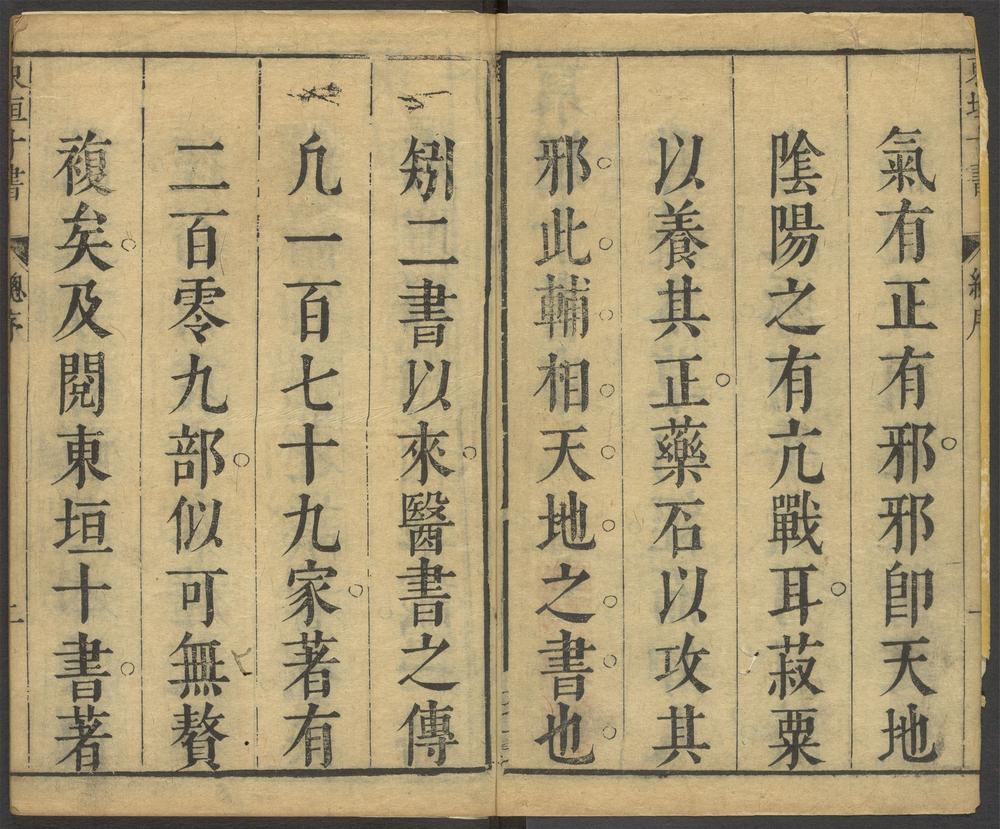 氣有正有邪。邪卽天地
陰陽之有亢戰耳。菽粟
以養其正。藥石以攻其
邪。此。輔。相。天。地。之。書。也。
東垣十書
總序
一
矧二書以來。醫書之傳
凡一百七十九家。著有
二百零九部。似可無贅
複矣。及閱東垣十書。著
東垣十書
總序
二